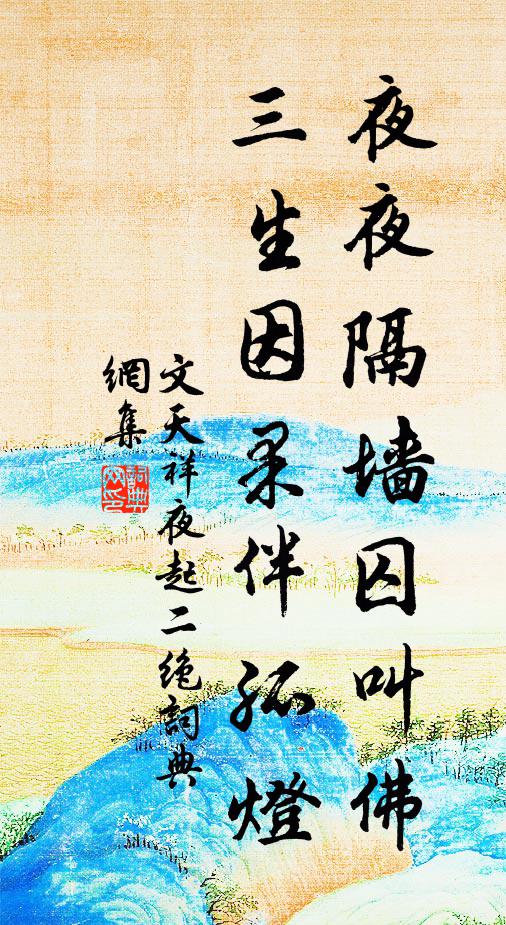 夜夜隔墙囚叫佛
三生因果伴孤燈
文天祥夜起二绝詞典
網集